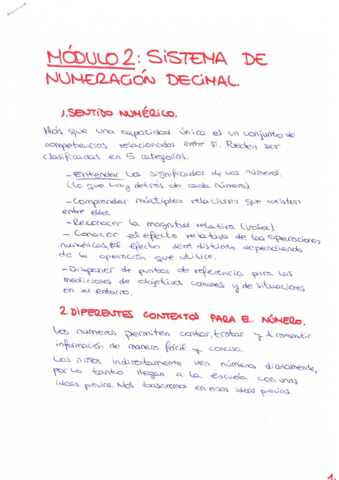 MÓDULO 2: SISTEMA DE
NUMERACIÓN DECIMAL.
1. SENTIDO NUMÉRICO.
Más que una capacidad única es un conjunto de
competencias relacionadas entre sí. Pueden ser
clasificadas en 5 categorías.
- Entender los significados de los números.
(Lo que hay detrás de cada número)
- Comprender múltiples relaciones que existen
entre ellos
- Reconocer la magnitud relativa (valor)
- Conocer el efecto relativo de las operaciones
numéricas, el efecto será distinto dependiendo
de la operación que utilice.
- Disponer de puntos de referencia para las
mediciones de objetos comunes y de situaciones
en el entorno.
2. DIFERENTES CONTEXTOS PARA EL NÚMERO.
Los números permiten contar, tratar y transmitir
información de manera fácil y concisa.
Los niños indirectamente ven números diariamente,
por lo tanto llegan a la escuela con unas
ideas previas. Nos basaremos en esas ideas previas.
1.